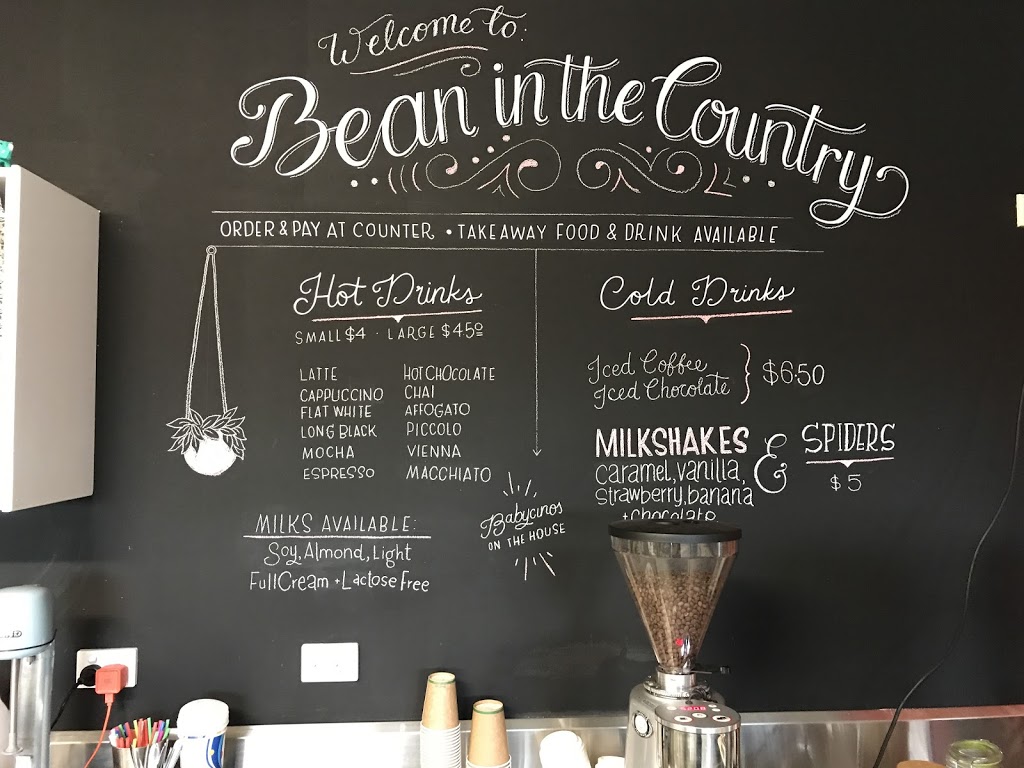 Welcome to:
Bean in the Country
ORDER & PAY AT COUNTER • TAKEAWAY FOOD & DRINK AVAILABLE
Hot Drinks
SMALL $4 · LARGE $4.50
LATTE
CAPPUCCINO
FLAT WHITE
LONG BLACK
MOCHA
ESPRESSO
HOT CHOCOLATE
CHAI
AFFOGATO
PICCOLO
VIENNA
MACCHIATO
MILKS AVAILABLE:
Soy, Almond, Light
Full Cream + Lactose Free
Babycinos
ON THE HOUSE
Cold Drinks
Iced Coffee
Iced Chocolate } $6.50
MILKSHAKES & SPIDERS
caramel, vanilla,
strawberry, banana
+ chocolate
$5